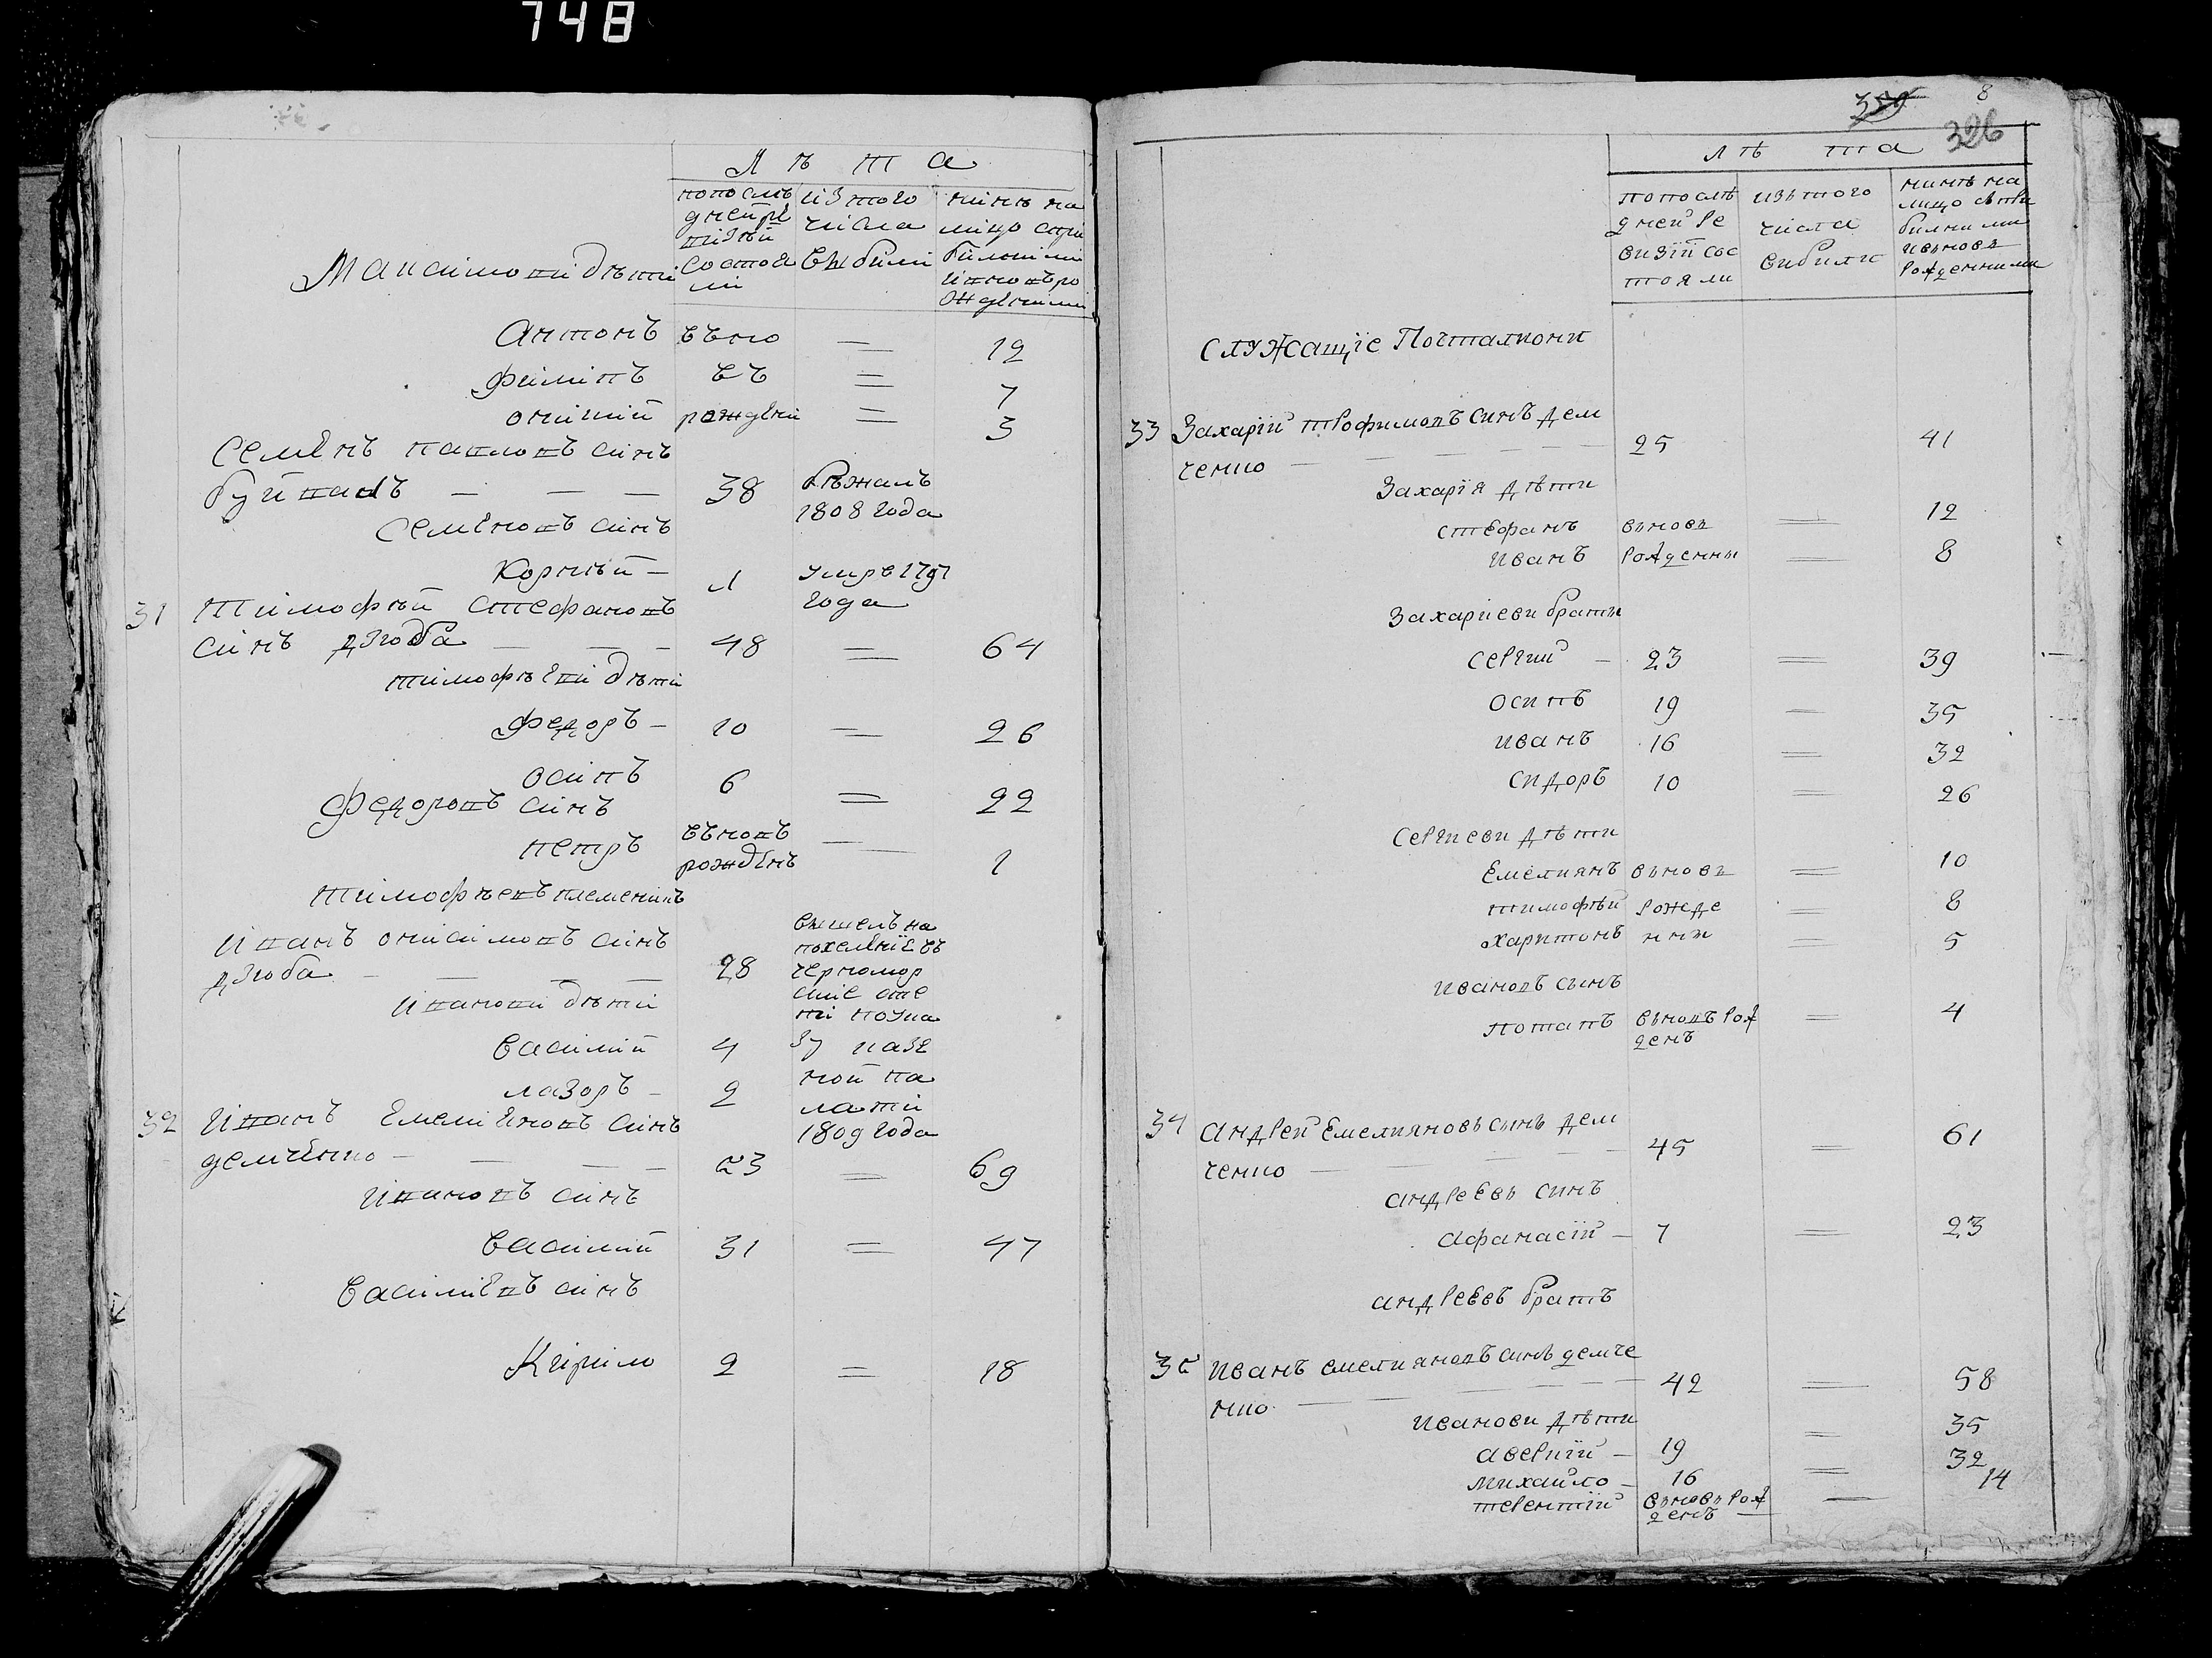 748
Лѣта
попослѣ
днейре
визіи
состоя
ли
изтого
числа
выбили
нинѣ на
лицо спри
билими
ивновъро
жденими
Максимови дѣти
Антонъ вьно — 12
Филипъ въ = 7
онисий рождени = 3
Семенъ павловъ синъ
буйвалъ — — — 38 бѣжалъ
1808 года
Семеновъ синъ
Корнѣй — 1 умре 1797
года
31 Тимофѣй Стефановъ
синъ дзюба — — — 48 = 64
тимофѣеви дѣти
Федоръ — 10 = 26
осипъ 6 = 22
Федоровъ синъ
петръ вьновъ
рожденъ — 1
Тимофѣевъ племенikъ
Иванъ онисимовъ синъ
дзюба — — — — 28
вышелъ на
поселеніе въ
черномор
ские сте
пи поука
зу казе
ной па
лати
1809 года
Иванови дѣти
Василий 4
лазоръ — 2
32 Иванъ Емелияновъ синъ
демченко — — — — 53 = 69
Ивановъ синъ
Василий 31 = 47
Василиевъ синъ
Кирило 2 = 18
359 8
326
лѣта
попослѣ
дней ре
визіи сос
тояли
изьтого
числа
вибили
нинѣ на
лицо сьпри
билими
ивьновь
рожденними
служащіе Почталиони
33 Захарій трофимовъ синъ дем
ченко — — — — — 25 41
Захарія дѣти
стефанъ вьновь = 12
иванъ рожденны = 8
Захариеви браты
сергий — 23 = 39
осипъ 19 = 35
иванъ 16 = 32
сидоръ 10 = 26
сергиеви дѣти
Емелиянъ вьновь = 10
тимофѣй рожде = 8
харитонъ нны = 5
ивановъ сынъ
потапъ вьновъ рож
денъ = 4
34 андрей Емелияновь сынь дем
ченко — — — — 45 = 61
андреевь синъ
афанасій — 7 = 23
андреевъ братъ
35 иванъ емелияновъ синъ демче
нко — — — — — 42 = 58
иванови дѣти
аверкій — 19 = 35
михайло — 16 = 32
терентій вьновь рож
денъ — 14